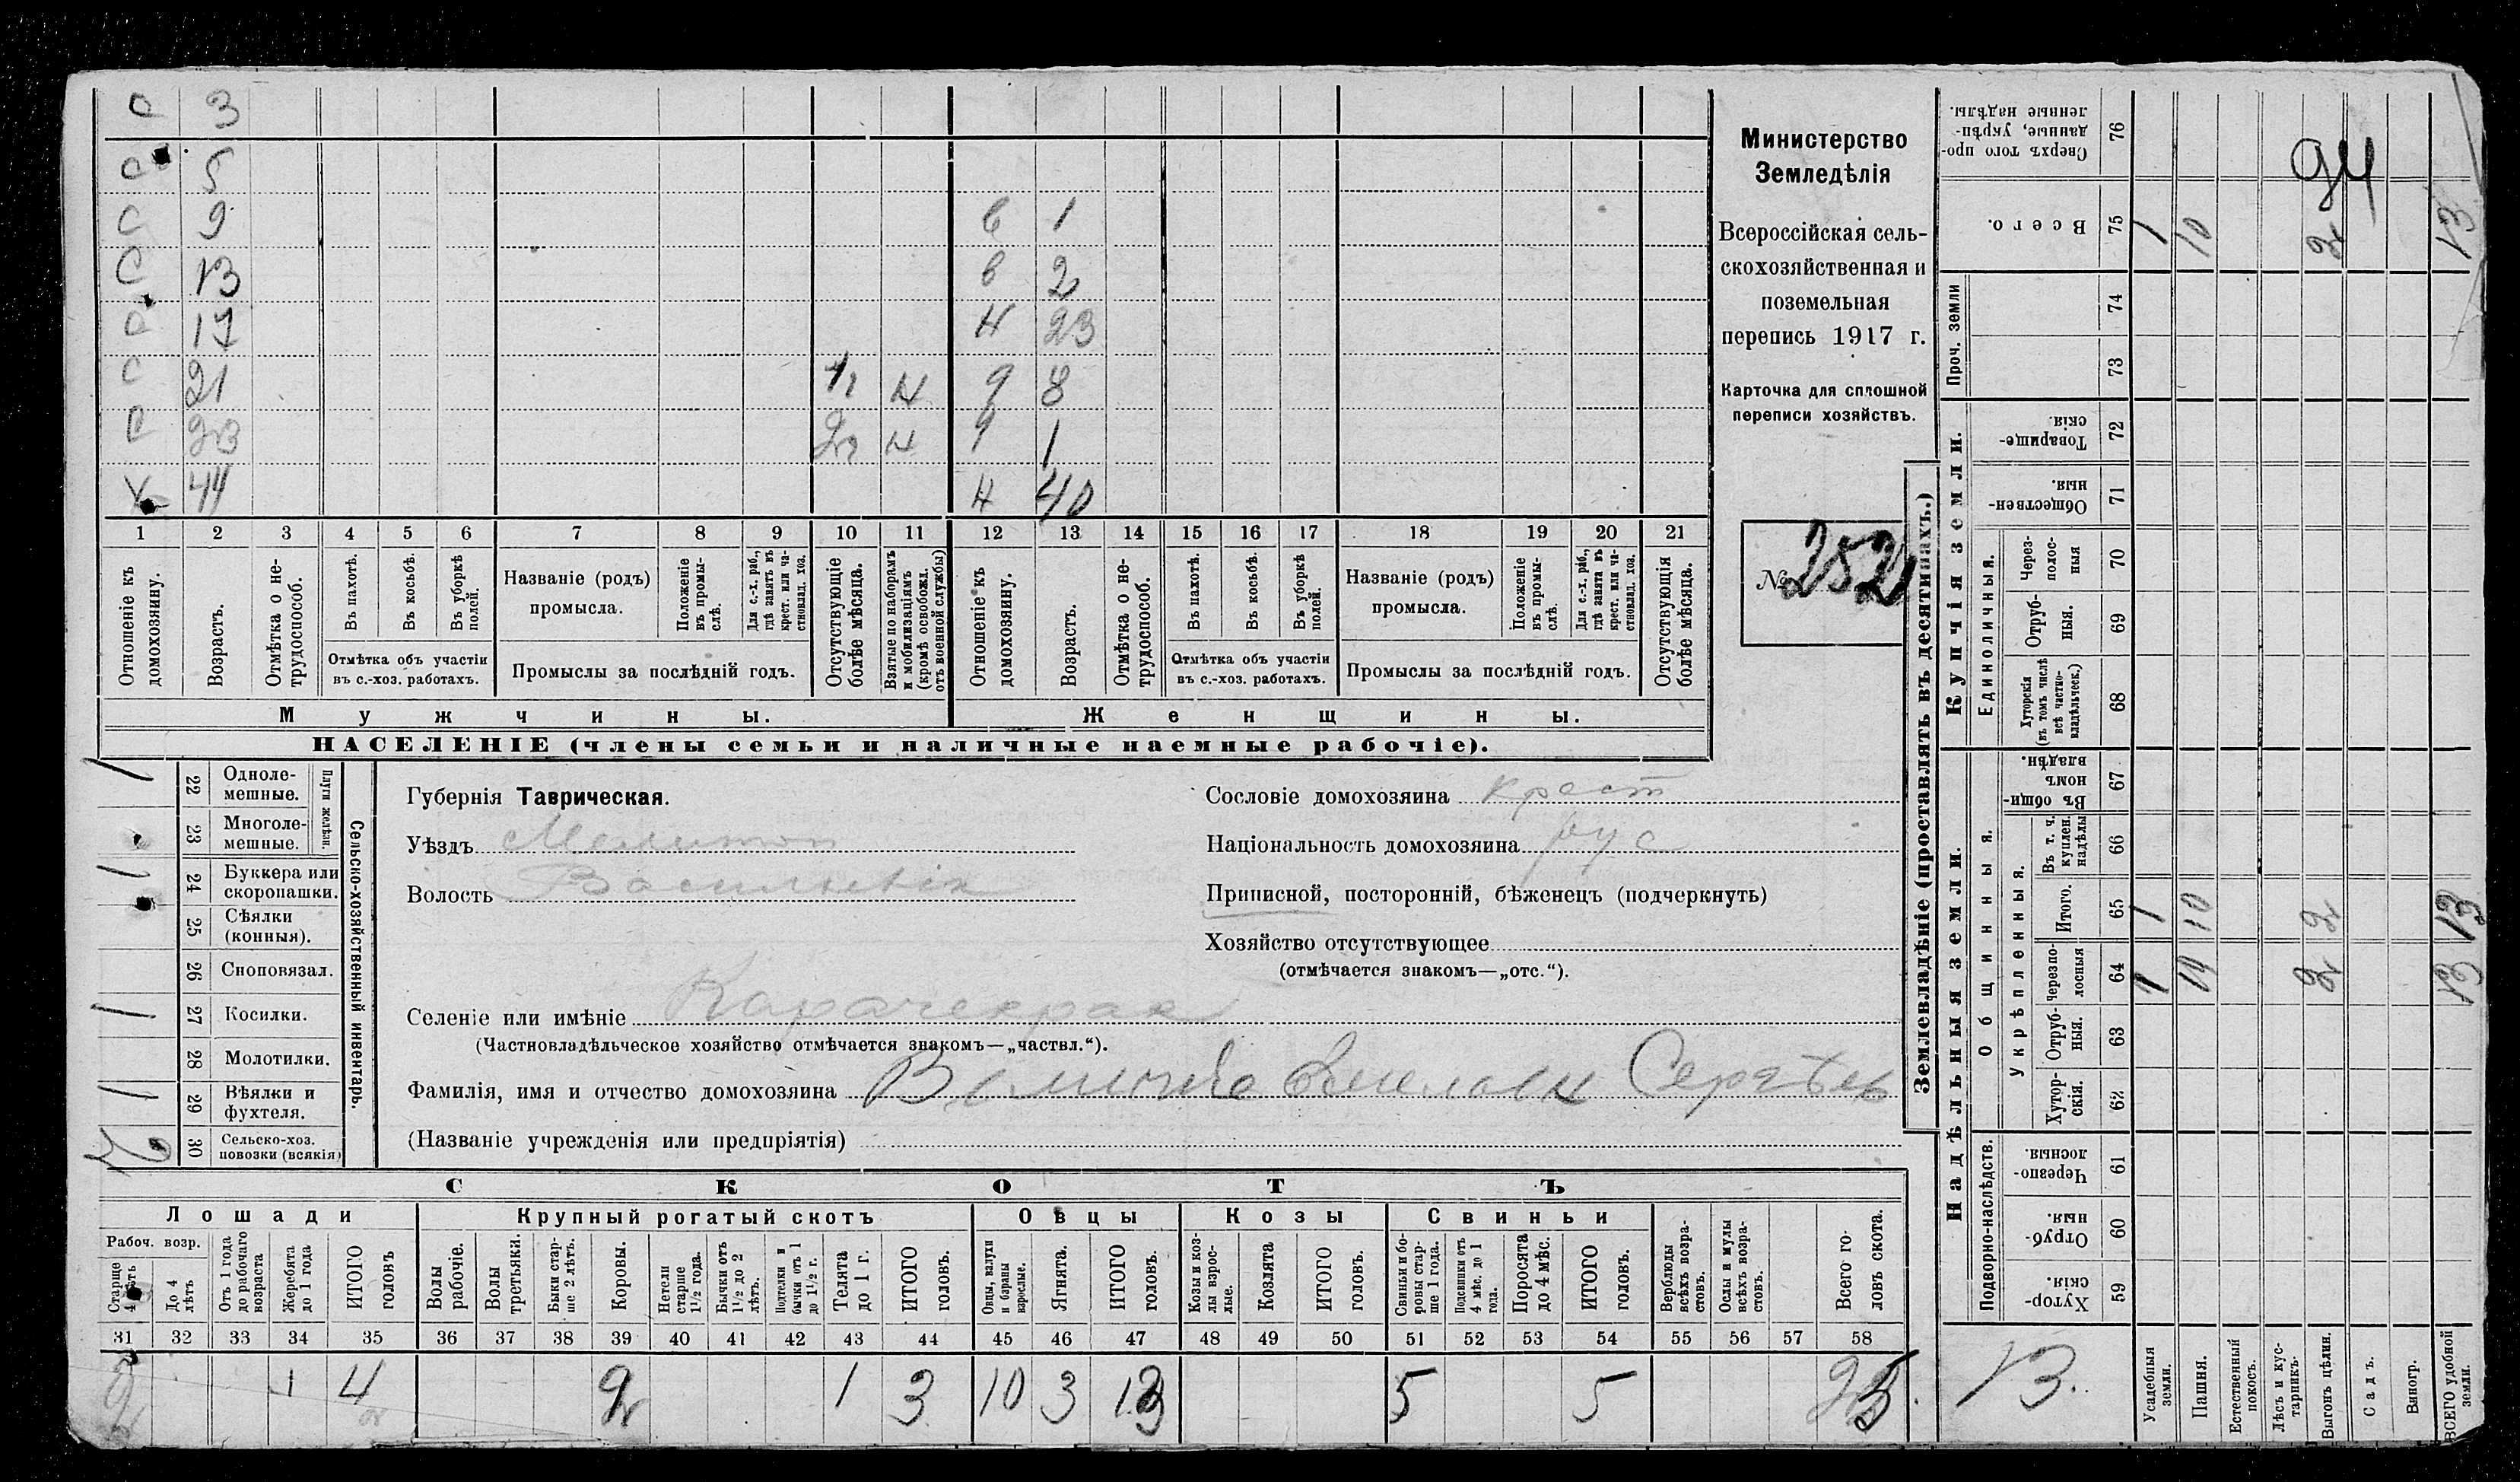 с 3
с 5
с 9 в 1
С 13 в 2
с 17 н 23
с 21 1/2 н 9 8
с 23 н 1
х 44 н 40
1 2 3 4 5 6 7 8 9 10 11 12 13 14 15 16 17 18 19 20 21
Отношеніе къ домохозяину.
Возрастъ.
Отмѣтка о не-
трудоспособ.
Въ пахотѣ.
Въ косьбѣ.
Въ уборкѣ
полей.
Отмѣтка объ участіи
въ с.-хоз. работахъ.
Названіе (родъ)
промысла.
Положеніе
въ промы-
слѣ.
Для с.-х. раб.,
гдѣ занятъ въ
крест. или ча-
стновлад. хоз.
Промыслы за послѣдній годъ.
Отсутствующіе
болѣе мѣсяца.
Взятые по наборамъ
и мобилизаціямъ
(кромѣ освобожд.
отъ военной службы)
Отношеніе къ
домохозяину.
Возрастъ.
Отмѣтка о не-
трудоспособ.
Въ пахотѣ.
Въ косьбѣ.
Въ уборкѣ
полей.
Отмѣтка объ участіи
въ с.-хоз. работахъ.
Названіе (родъ)
промысла.
Положеніе
въ промы-
слѣ.
Для с.-х. раб.,
гдѣ занята въ
крест. или ча-
стновлад. хоз.
Промыслы за послѣдній годъ.
Отсутствующія
болѣе мѣсяца.
Мужчины.
Женщины.
НАСЕЛЕНІЕ (члены семьи и наличные наемные рабочіе).
Министерство
Земледѣлія
Всероссійская сель-
скохозяйственная и
поземельная
перепись 1917 г.
Карточка для сплошной
переписи хозяйствъ.
№ 252
Сельско-хозяйственный инвентарь.
Плуги желѣзн.
1 22 Одноле-
мешные.
23 Многоле-
мешные.
1 24 Буккера или
скоропашки.
25 Сѣялки
(конныя).
26 Сноповязал.
1 27 Косилки.
28 Молотилки.
1 29 Вѣялки и
фухтеля.
30 Сельско-хоз.
повозки (всякія)
Губернія Таврическая.
Уѣздъ Мелитоп
Волость Васильевск
Сословіе домохозяина крест
Національность домохозяина рус
Приписной, посторонній, бѣженецъ (подчеркнуть)
Хозяйство отсутствующее
(отмѣчается знакомъ—„отс.“).
Селеніе или имѣніе Карачекрак
(Частновладѣльческое хозяйство отмѣчается знакомъ—„частвл.“).
Фамилія, имя и отчество домохозяина Сергѣев
(Названіе учрежденія или предпріятія)
СКОТЪ
Лошади Крупный рогатый скотъ Овцы Козы Свиньи
Рабоч. возр.
Старше
4 лѣтъ
До 4
лѣтъ
Отъ 1 года
до рабочаго
возраста
Жеребята
до 1 года
ИТОГО
головъ
Волы
рабочіе.
Волы
третьяки.
Быки стар-
ше 2 лѣтъ.
Коровы.
Нетели
старше
1½ года.
Бычки отъ
1½ до 2
лѣтъ.
Подтелки и
бычки отъ 1
до 1½ г.
Телята
до 1 г.
ИТОГО
головъ.
Овцы, валухи
и бараны
взрослые.
Ягнята.
ИТОГО
головъ.
Козы и коз-
лы взрос-
лые.
Козлята
ИТОГО
головъ.
Свиньи и бо-
ровы стар-
ше 1 года.
Подсвинки отъ
4 мѣс. до 1
года.
Поросята
до 4 мѣс.
ИТОГО
головъ.
Верблюды
всѣхъ возра-
стовъ.
Ослы и мулы
всѣхъ возра-
стовъ.
Всего го-
ловъ скота.
31 32 33 34 35 36 37 38 39 40 41 42 43 44 45 46 47 48 49 50 51 52 53 54 55 56 57 58
1 4 2 1 3 10 3 13 5 5 25
Землевладѣніе (проставлять въ десятинахъ.)
Купчія земли.
Надѣльныя земли.
Проч. земли
Единоличныя.
Общинныя.
Укрѣпленныя.
Подворно-наслѣдств.
Сверхъ того про-
данные, укрѣп-
ленные надѣлы. 76
94
Всего. 75 1 10 2 13
74
73
Товарище-
скія. 72
Обществен-
ныя. 71
Через-
полос-
ныя 70
Отруб-
ныя. 69
Хуторскія
(въ томъ числѣ
всѣ частно-
владѣльческ.) 68
Въ общин-
номъ
владѣн. 67
Въ т. ч.
куплен.
надѣлы 66
Итого. 65 1 10 2 13
Черезпо-
лосныя 64 1 10 2 13
Отруб-
ныя. 63
Хутор-
скія. 62
Черезпо-
лосныя. 61
Отруб-
ныя. 60
Хутор-
скія. 59
13.
Усадебныя
земли.
Пашня.
Естественный
покосъ.
Лѣсъ и кус-
тарникъ.
Выгонъ цѣлин.
Садъ.
Виногр.
ВСЕГО удобной
земли.